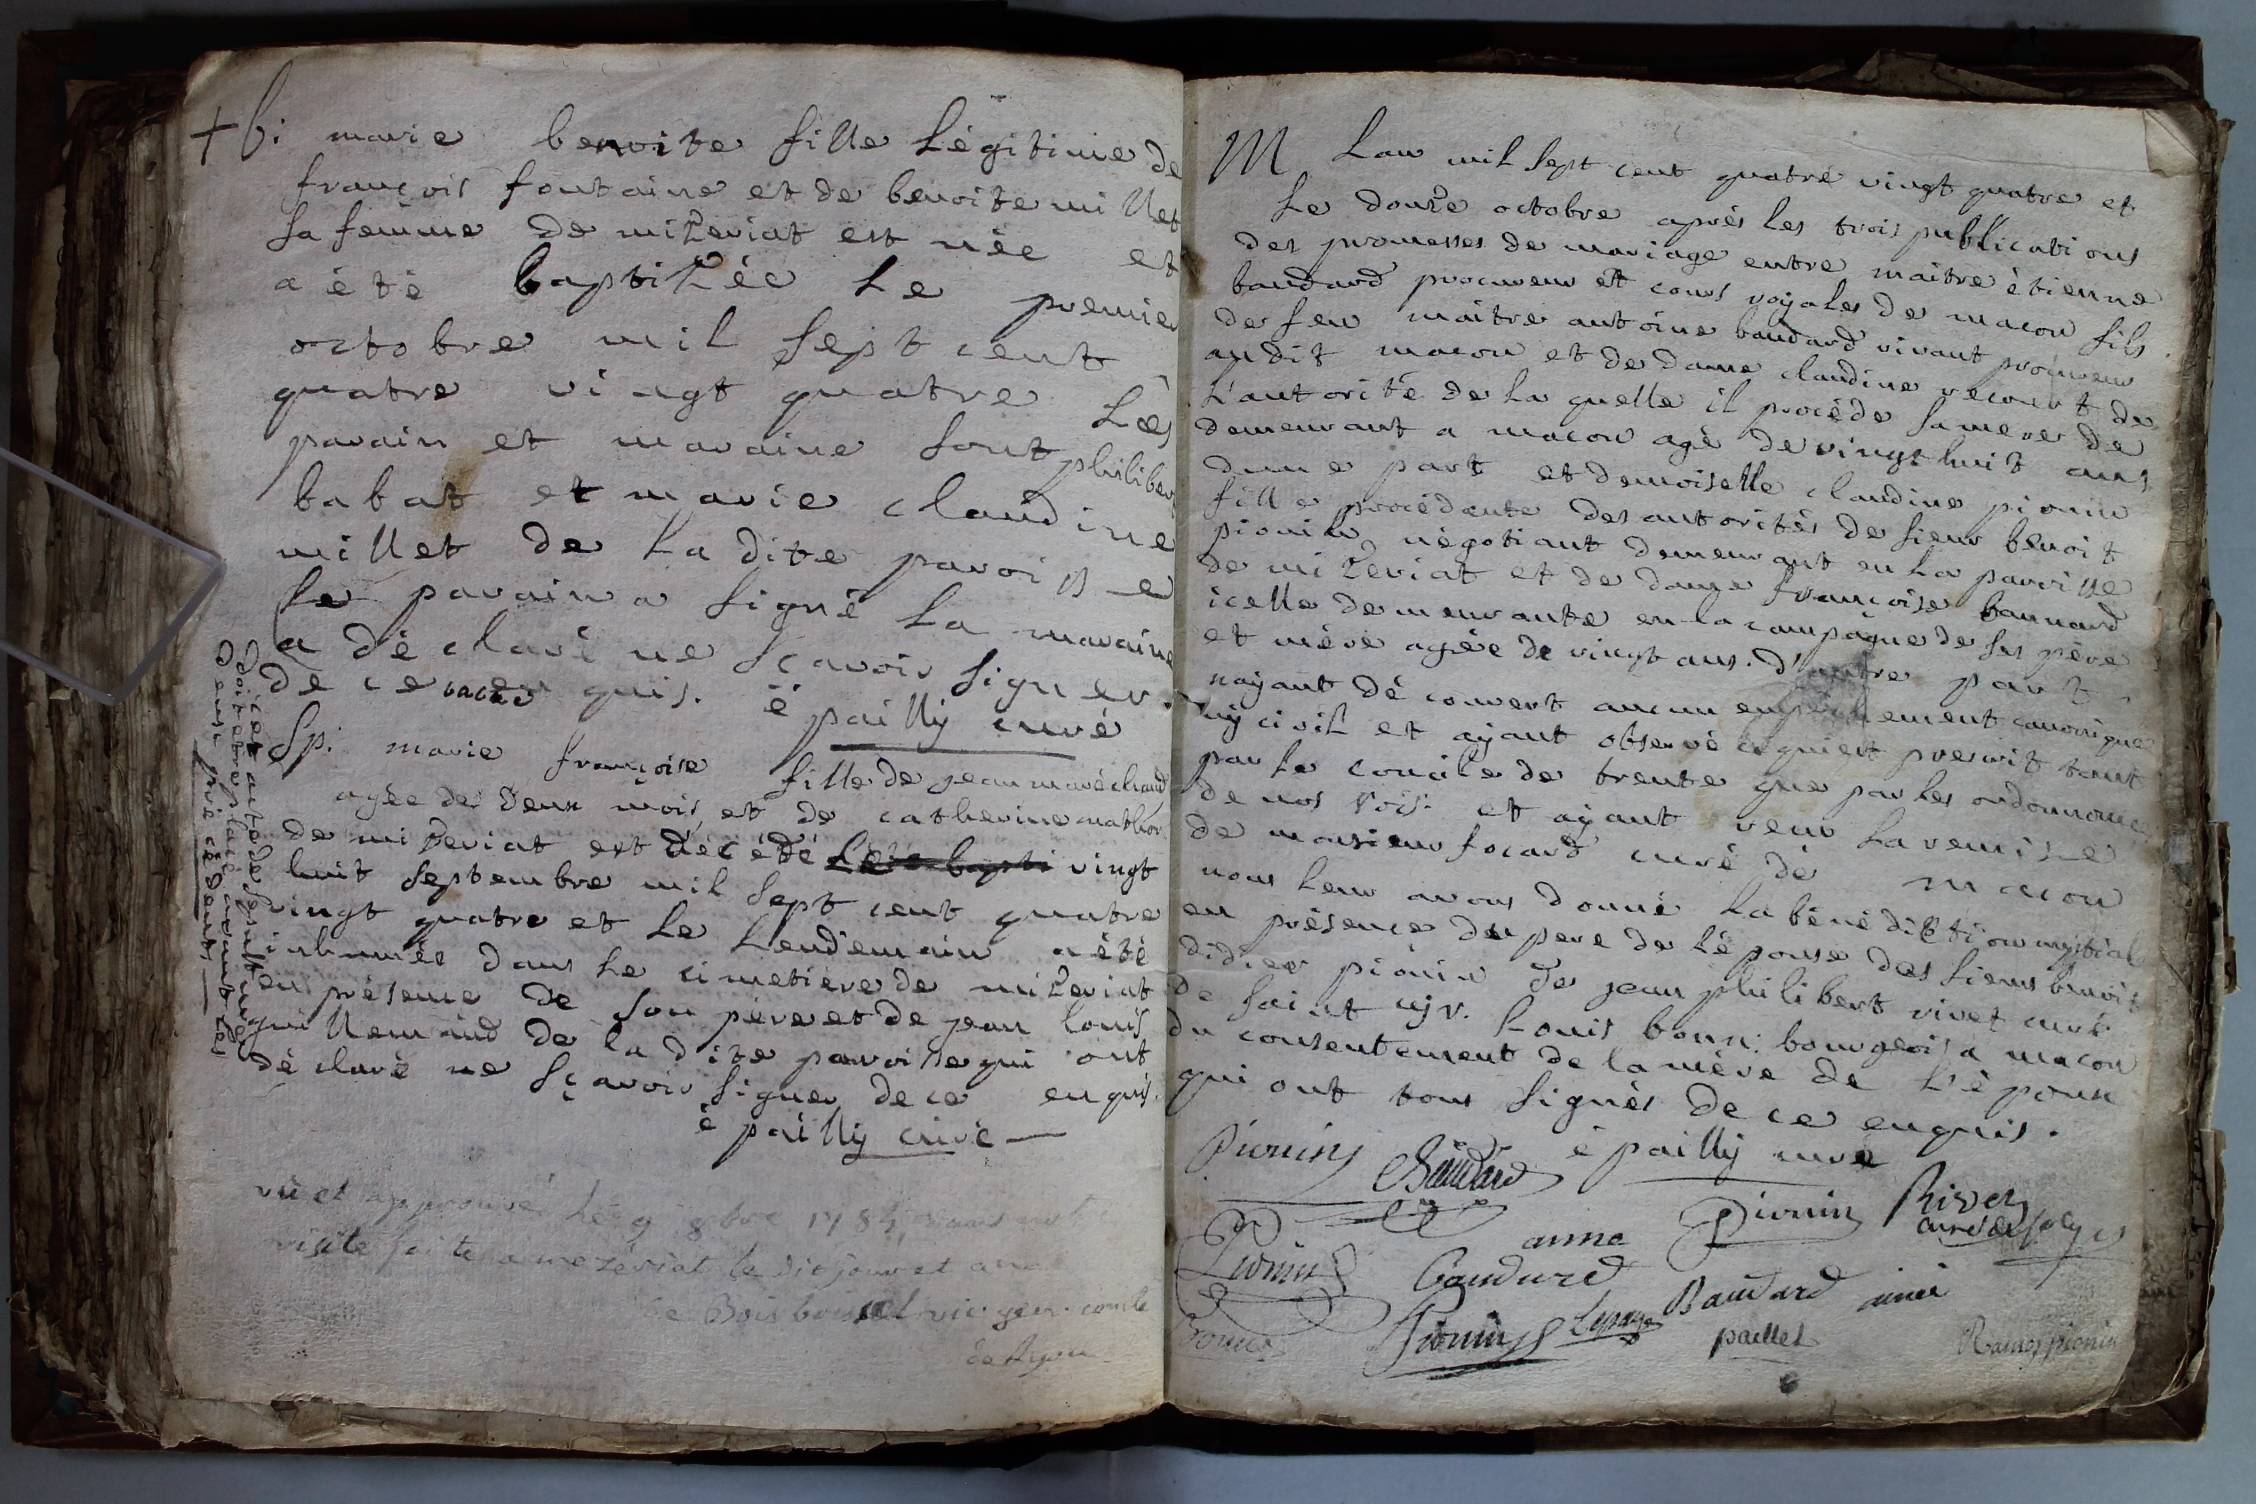 + bi marie benoite fille légitime de
françois fontaine et de benoite millet
sa femme de mizeriat est née et
a été baptizée le premier
octobre mil sept cent
quatre vingt quatre les
parain et maraine sont philibert
babat et marie claudine
millet de la dite paroisse
le parain a signé la maraine
a déclaré ne sçavoir signer.
de ce enquis. é pailly curé
Sp. marie françoise fille de jean maréchaud
agée de deux mois, et de catherine mathon
de mizeriat est décédé vingt
huit septembre mil sept cent quatre
vingt quatre et le lendemain a été
inhumée dans le cimetiere de mizeriat
en présence de son pére et de jean louis
guillemaud de la dite paroisse qui ont
déclaré ne sçavoir signer de ce enquis.
é pailly curé
doit etre placé avant les
deux précédents
vu et approuvé le 9 8bre 1784 dans notre
visite faite a mezériat le dit jour et an
de Bois boissel vic. gen. comte
de Lyon
M Lan mil sept cent quatre vingt quatre et
le douze octobre aprés les trois publications
des promesses de mariage entre maitre étienne
baudard procureur et cours royales de macon fils
de feu maitre antoine baudard vivant procureur
audit macon et de dame claudine recourt de
l'autorité de la quelle il procéde sa mere de
demeurant a macon agé de vingt huit ans
dune part et demoiselle claudine pionin
fille procédante des autorités de sieur benoit
pionin, négotiant demeurant en la paroisse
de mizeriat et de dame françoise bannard
icelle demeurante en la compagne de ses pére
et mére agée de vingt ans. d'autre part,
nayant dé couvert aucun empechement canonique
ny civil et ayant observé ce qui est prescrit tant
par le concile de trente que par les ordonnances
de nos rois. et ayant veu la remise
de monsieur focard curé de macon
nous leur avons donné la bénédiction nuptiale
en présence du pere de lépouse des sieurs benoit
didier pionin de jean philibert rivet curé
de saint cyr. louis bonn: bourgeois a macon
du consentement de la mére de l'épouse
qui ont tous signés de ce enquis.
é pailly curé
Pionin Baudard
Pionin Rivet
curé de st cyr
Pionin anne
Baudard Baudard ainé
Pionin paillet
Pionin